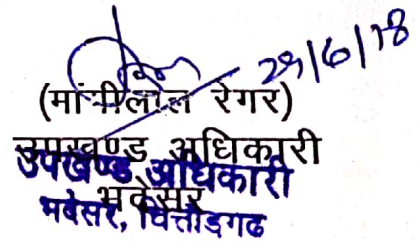 29/6/18
(मांगीलाल रेगर)
उपखण्ड अधिकारी
भदेसर
उपखण्ड अधिकारी
भदेसर, चित्तौड़गढ